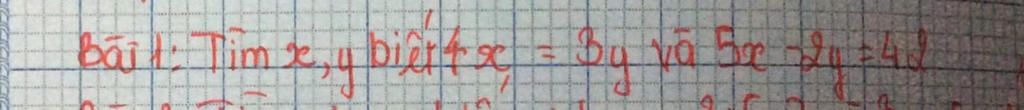 Bài 1: Tìm x, y biết 4x = 3y và 5x - 2y = 42